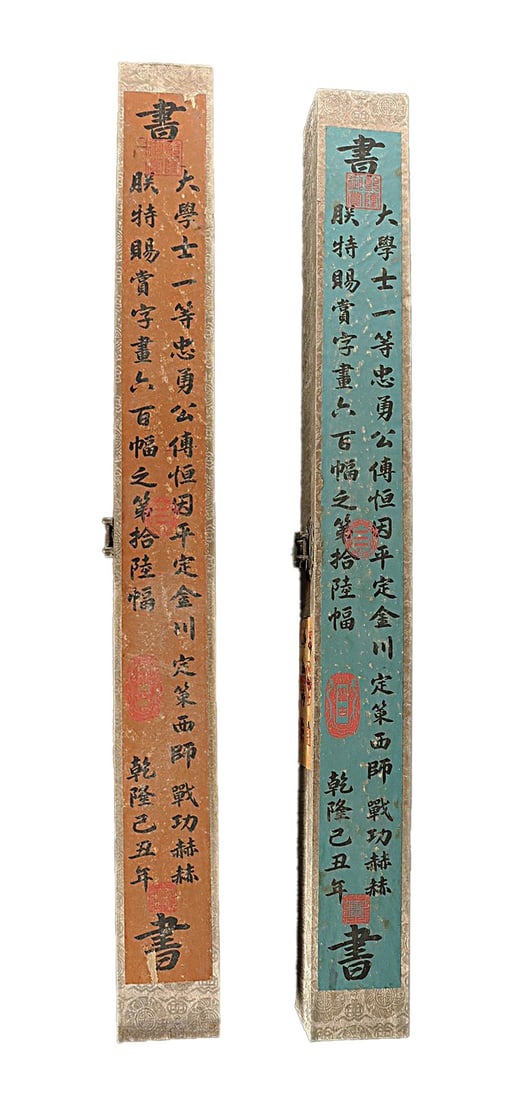 書
大學士一等忠勇公傅恒因平定金川定策西師戰功赫赫
朕特賜賞字畫六百幅之第拾陸幅
乾隆己丑年
書
書
大學士一等忠勇公傅恒因平定金川定策西師戰功赫赫
朕特賜賞字畫六百幅之第拾陸幅
乾隆己丑年
書